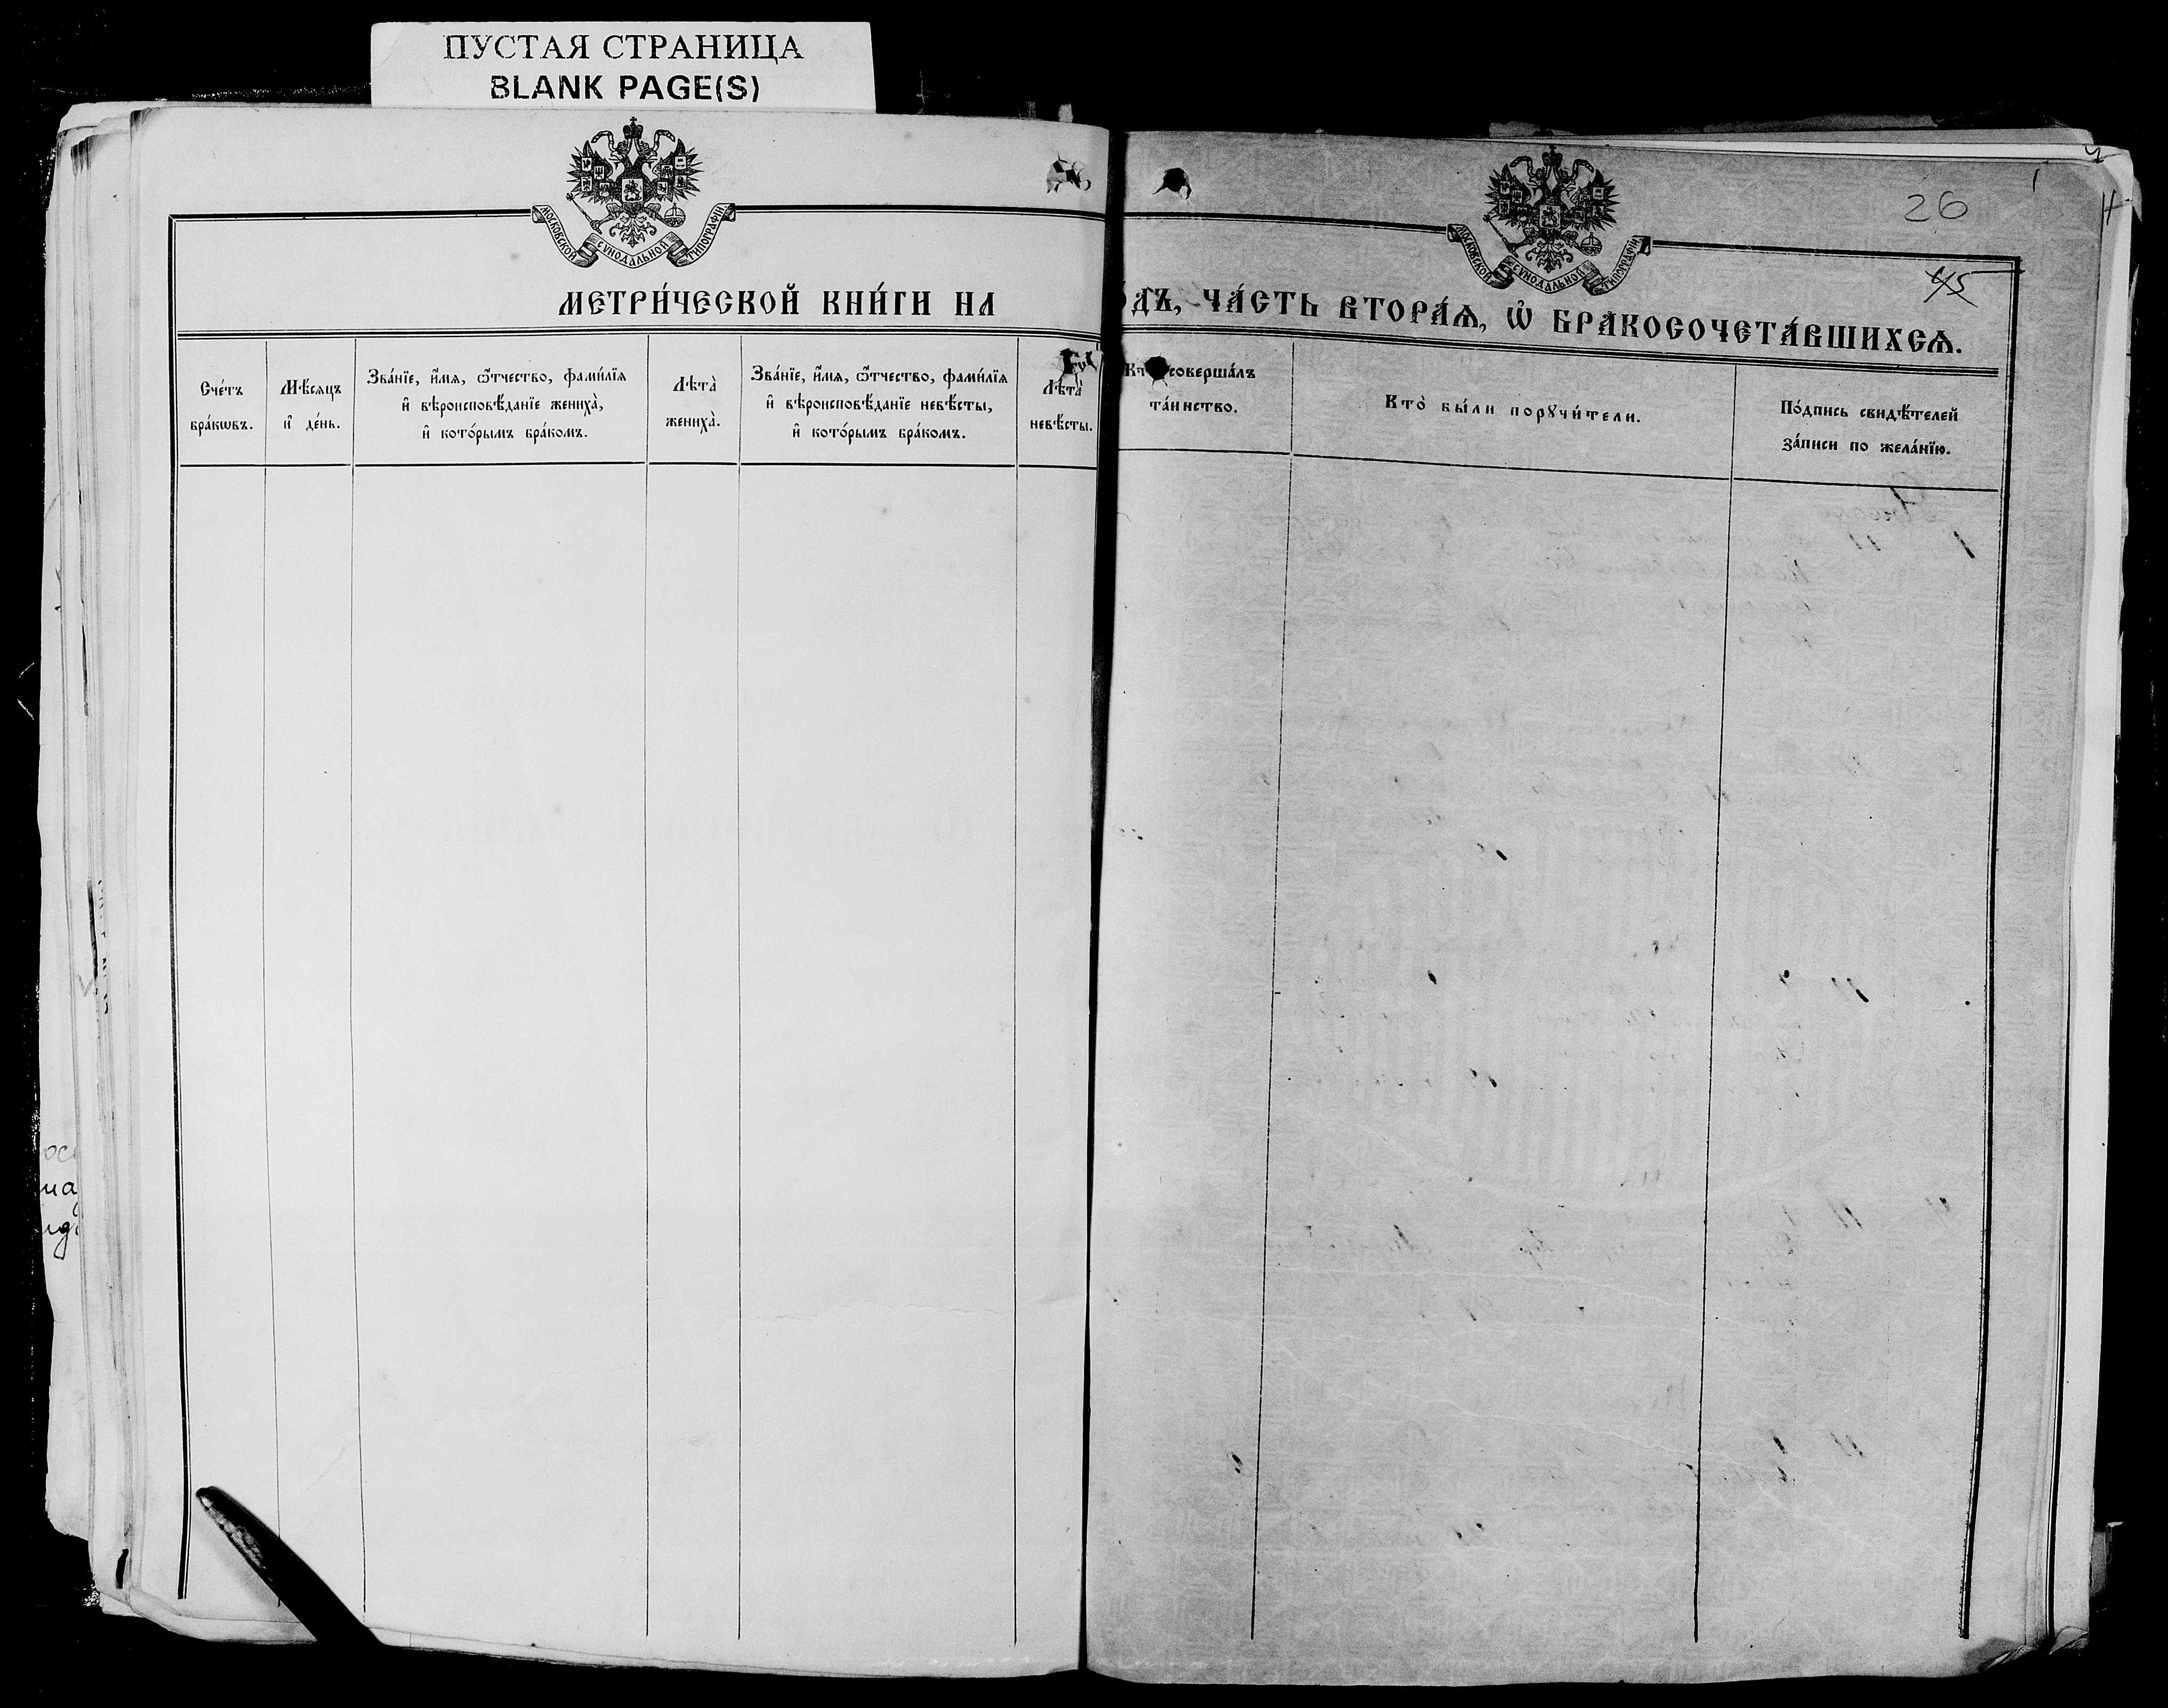 ПУСТАЯ СТРАНИЦА
BLANK PAGE(S)
МОСКОВСКОЙ СѴНОДАЛЬНОЙ ТИПОГРАФІИ
МОСКОВСКОЙ СѴНОДАЛЬНОЙ ТИПОГРАФІИ
26
45
МЕТРИ́ЧЕСКОЙ КНИ́ГИ НА
О́ДЪ, ЧА́СТЬ ВТОРА́Ѧ, Ѽ БРАКОСОЧЕТА́ВШИХСѦ.
Сче́тъ
бра́кѡвъ.
Мѣ́сѧцъ
и҆ де́нь.
Зва́нїе, и҆́мѧ, ѻ҆́тчество, фами́лїѧ
и҆ вѣроисповѣ́данїе жениха̀,
и҆ кото́рымъ бра́комъ.
Лѣта̀
жениха̀.
Зва́нїе, и҆́мѧ, ѻ҆́тчество, фами́лїѧ
и҆ вѣроисповѣ́данїе невѣ́сты,
и҆ кото́рымъ бра́комъ.
Лѣта̀
невѣ́сты.
Кт совершáлъ
та́инство.
Кто̀ бы́ли порꙋчи́тели.
По́дпись свидѣ́телей
за́писи по жела́нїю.